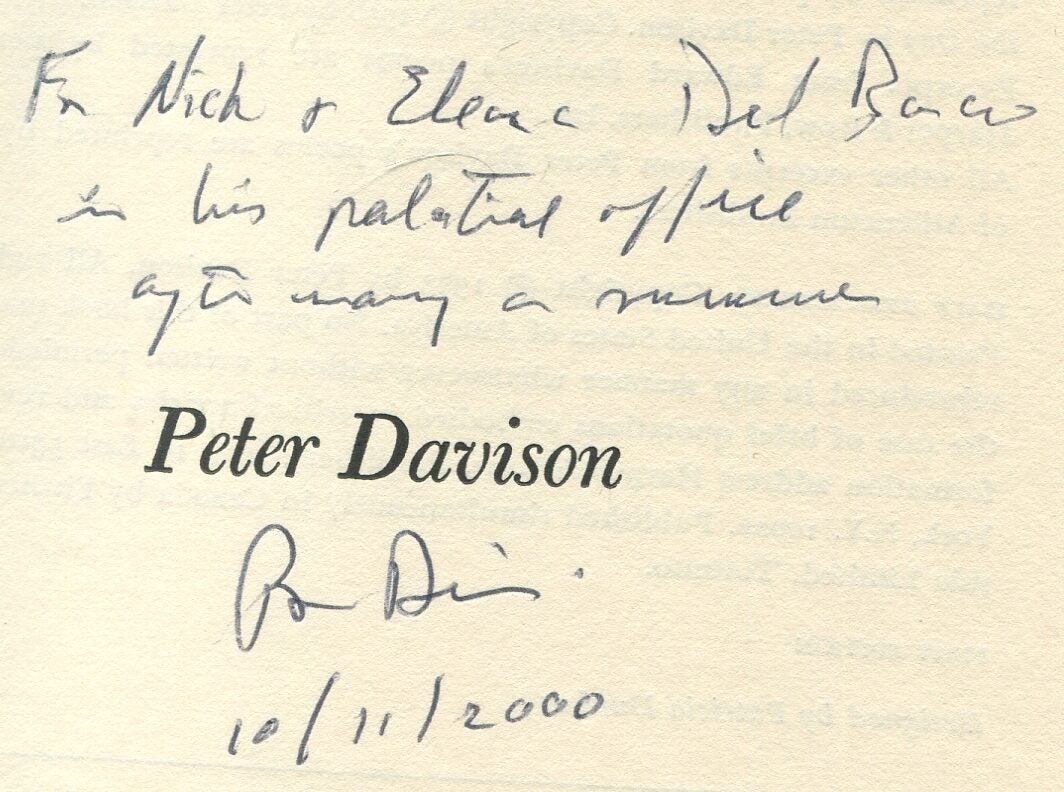 For Nick & Elena Del Banco
in his palatial office
after many a summer
Peter Davison
Peter Davison
10/11/2000